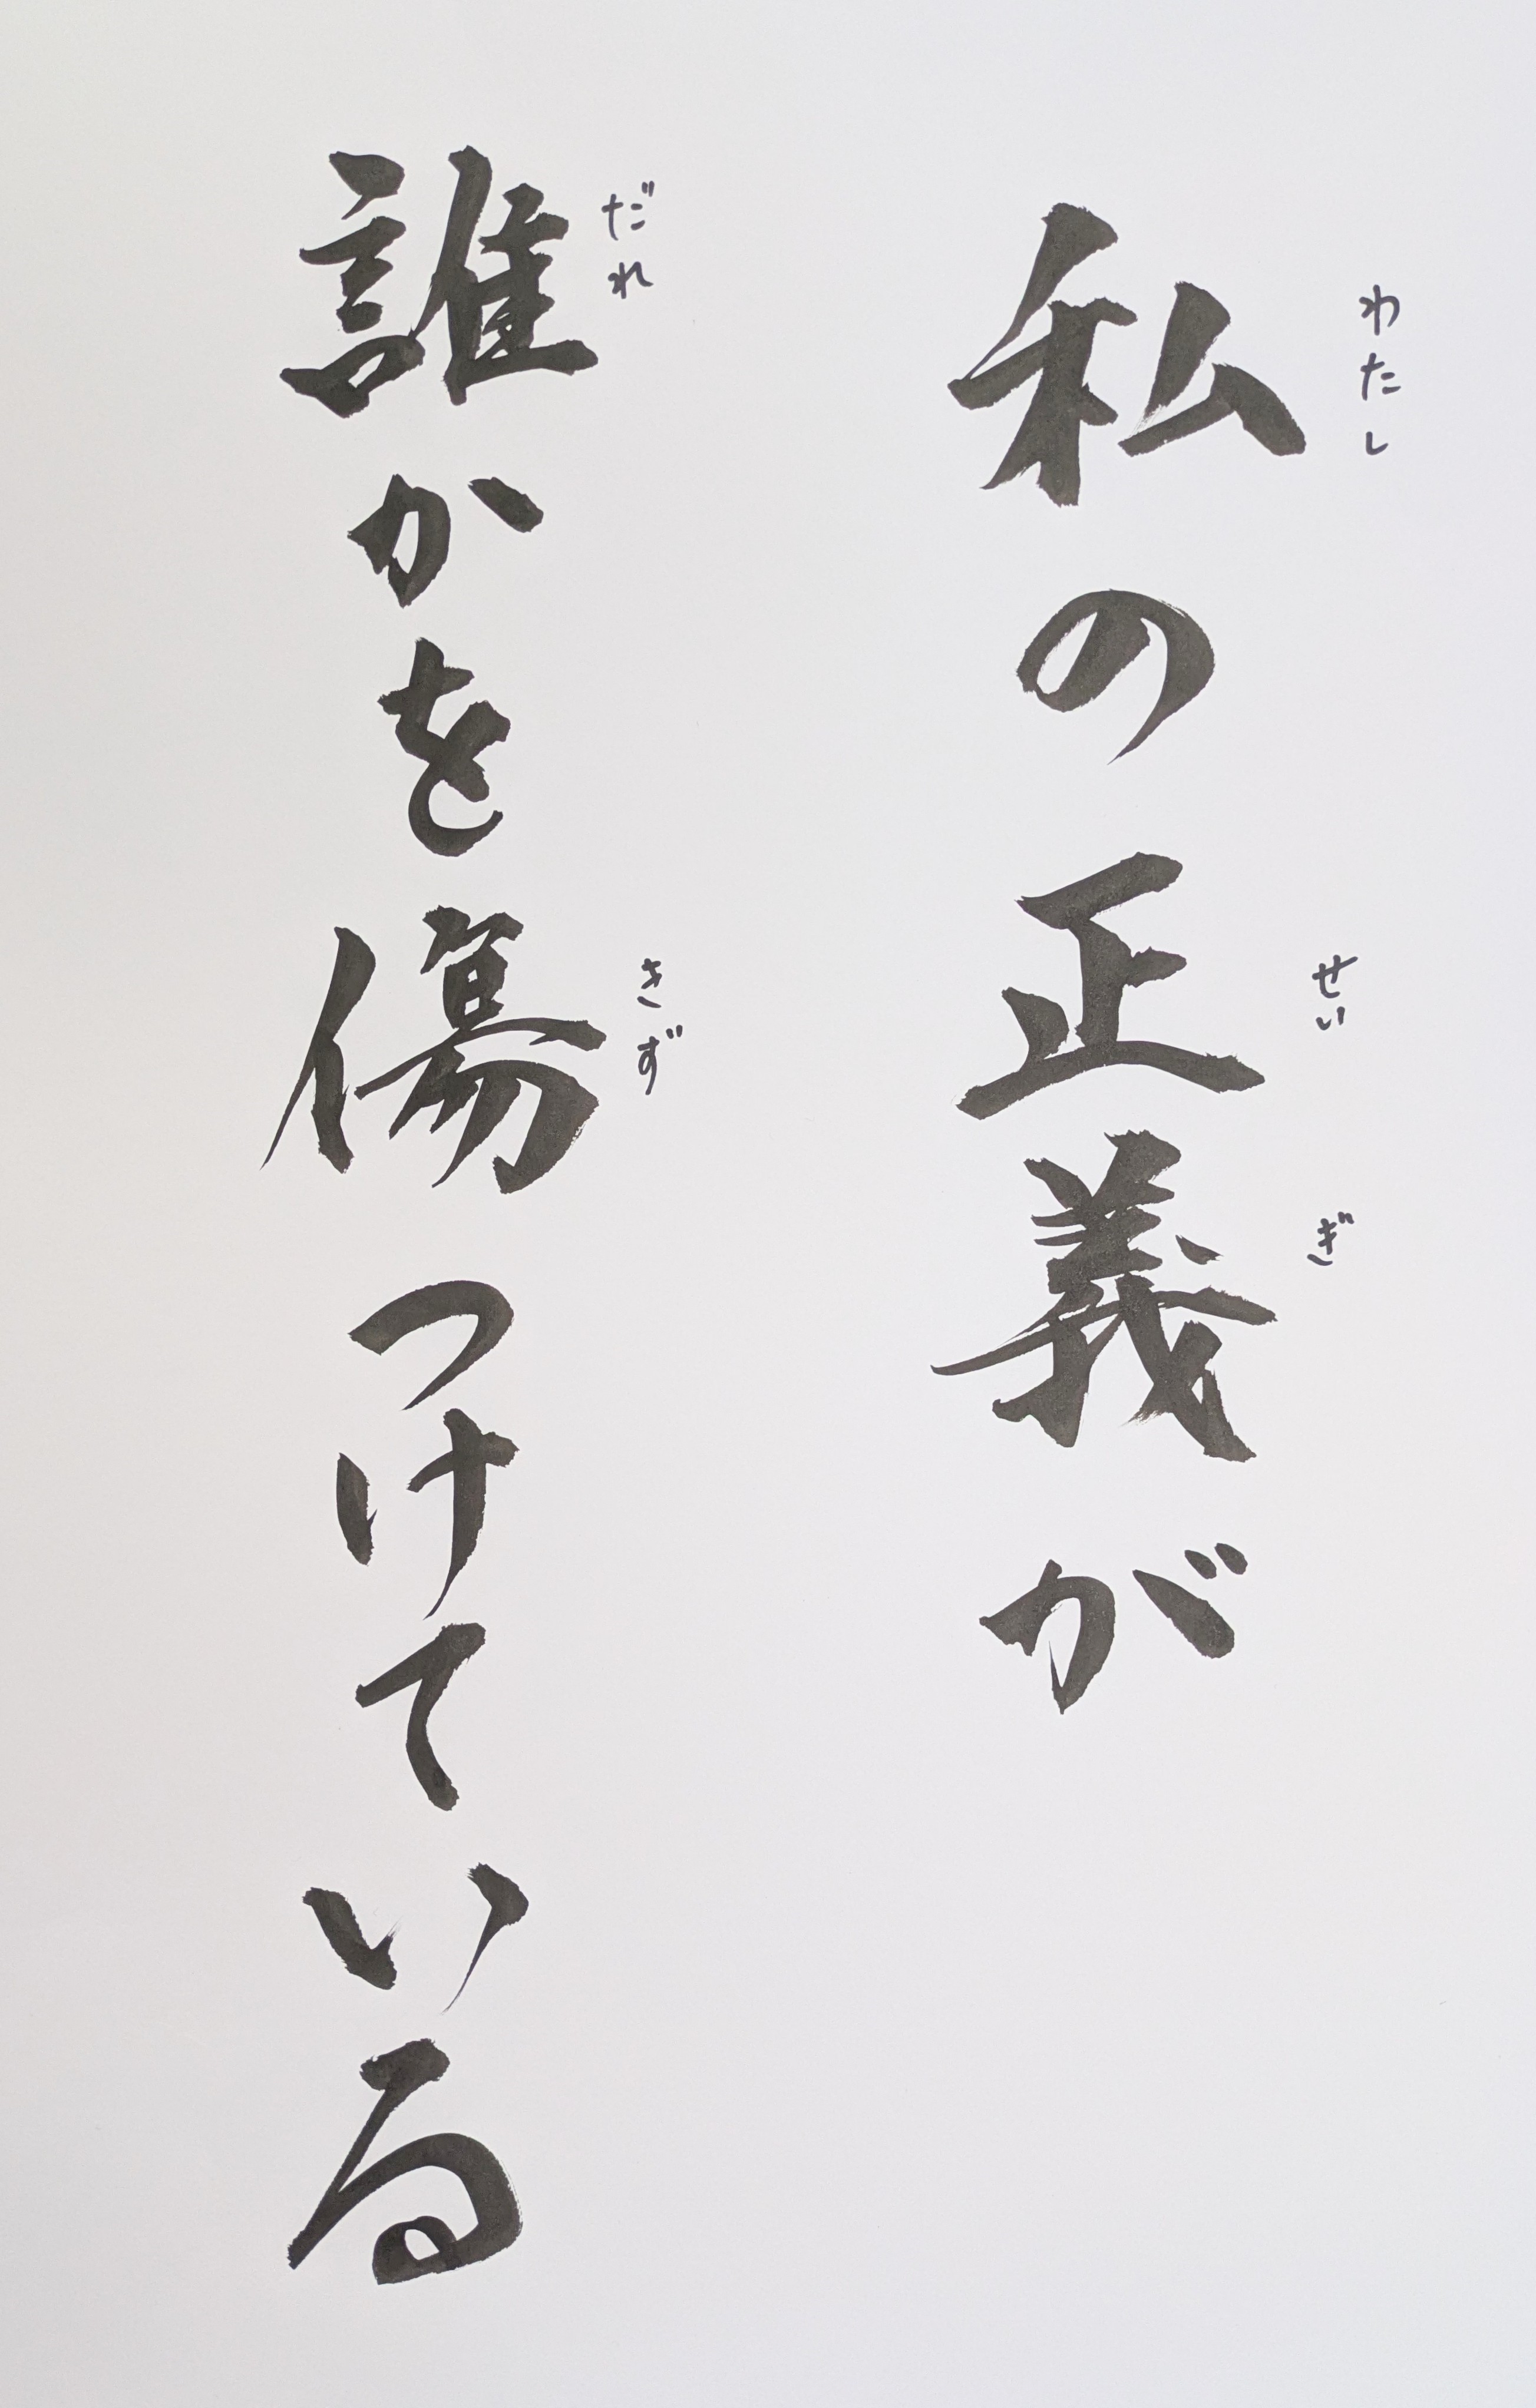 私の正義が
わたし
せい
ぎ
誰かを傷つけている
だれ
きず